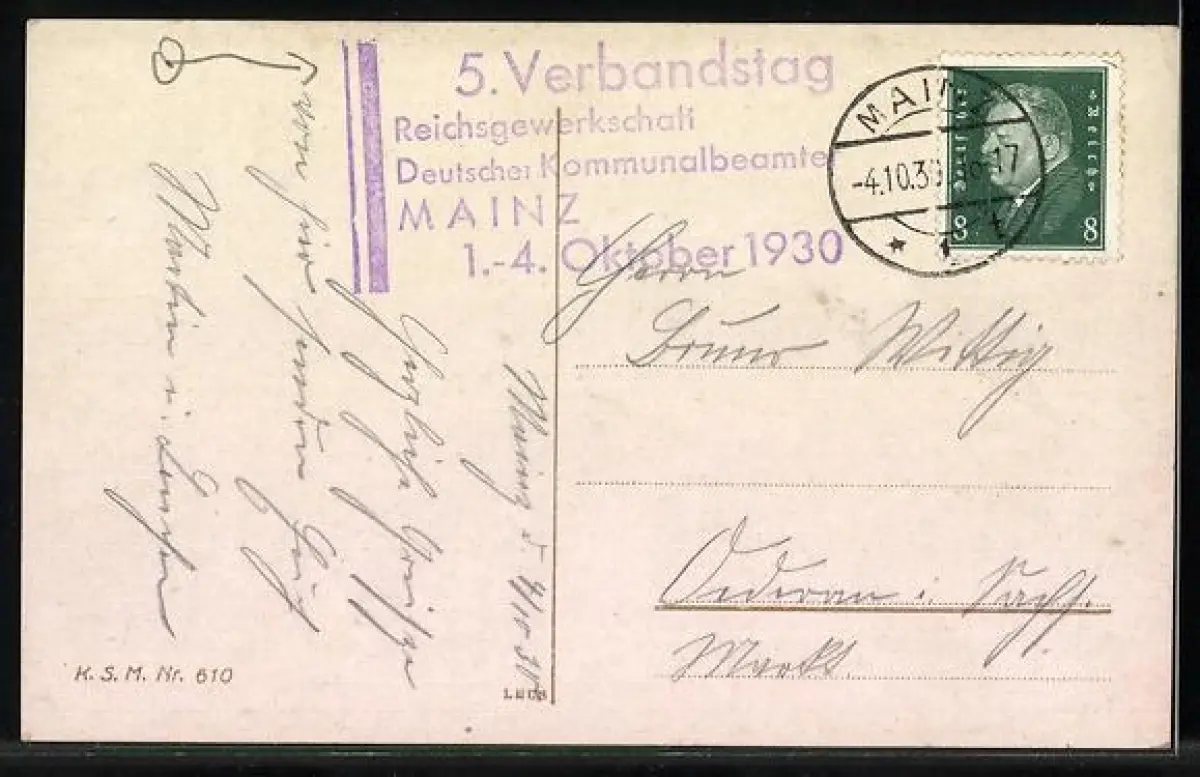 5. Verbandstag
Reichsgewerkschaft
Deutscher Kommunalbeamter
MAINZ
1.-4. Oktober 1930
MAINZ
-4.10.30 -17
Deutsches Reich
8 8
Herrn
Bruno Wittig
Oederan i. Sachs.
Markt.
Mainz d. 4/10 30
Herzliche Grüße
von hier senden
Martin u.
K. S. M. Nr. 610